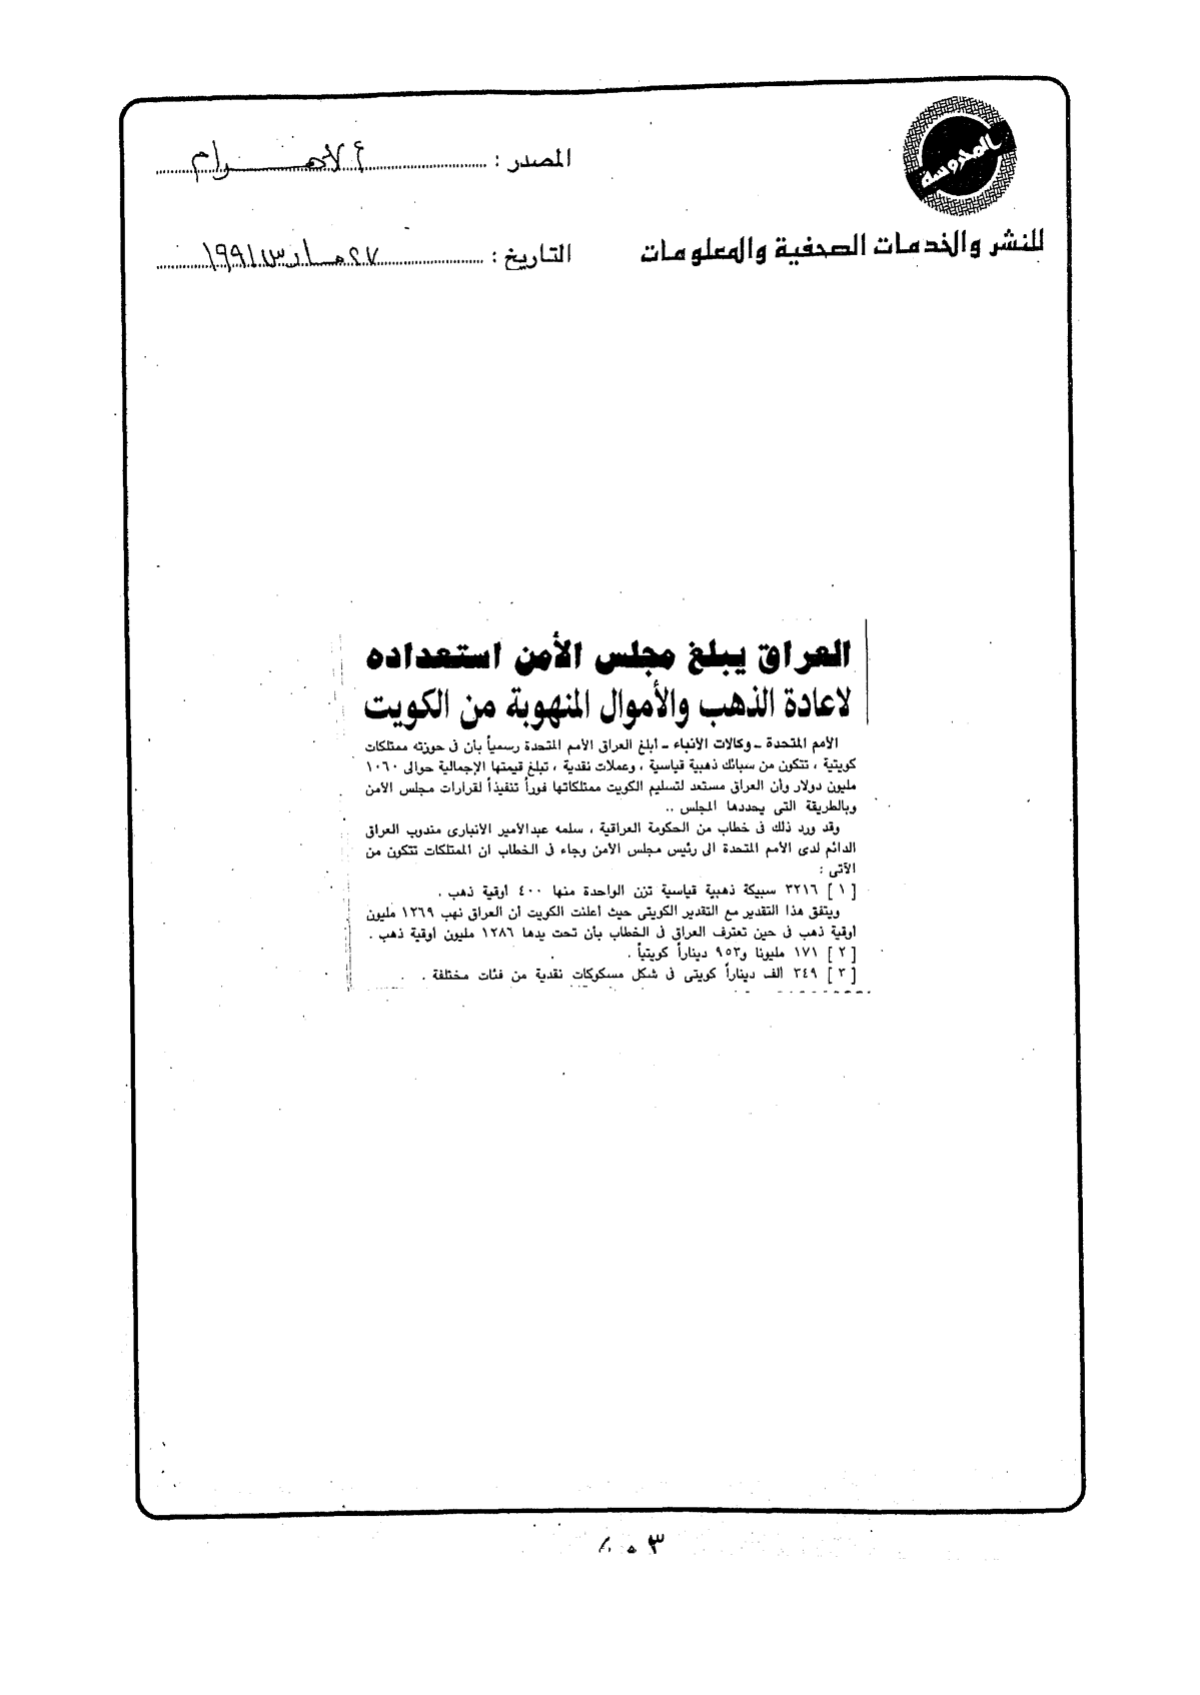 المحروسة
للنشر والخدمات الصحفية والمعلومات
المصدر : الأهرام
التاريخ : ٢٧ مارس ١٩٩١
العراق يبلغ مجلس الأمن استعداده
لاعادة الذهب والأموال المنهوبة من الكويت
الأمم المتحدة ـ وكالات الأنباء ـ أبلغ العراق الأمم المتحدة رسمياً بأن فى حوزته ممتلكات
كويتية ، تتكون من سبائك ذهبية قياسية ، وعملات نقدية ، تبلغ قيمتها الإجمالية حوالى ١٠٦٠
مليون دولار وأن العراق مستعد لتسليم الكويت ممتلكاتها فوراً تنفيذاً لقرارات مجلس الأمن
وبالطريقة التى يحددها المجلس ..
وقد ورد ذلك فى خطاب من الحكومة العراقية ، سلمه عبدالأمير الأنبارى مندوب العراق
الدائم لدى الأمم المتحدة الى رئيس مجلس الأمن وجاء فى الخطاب ان الممتلكات تتكون من
الآتى :
[ ١ ] ٣٢١٦ سبيكة ذهبية قياسية تزن الواحدة منها ٤٠٠ أوقية ذهب .
ويتفق هذا التقدير مع التقدير الكويتى حيث أعلنت الكويت أن العراق نهب ١٢٦٩ مليون
أوقية ذهب فى حين تعترف العراق فى الخطاب بأن تحت يدها ١٢٨٦ مليون أوقية ذهب .
[ ٢ ] ١٧١ مليونا و٩٥٣ ديناراً كويتياً .
[ ٣ ] ٣٤٩ ألف ديناراً كويتى فى شكل مسكوكات نقدية من فئات مختلفة .